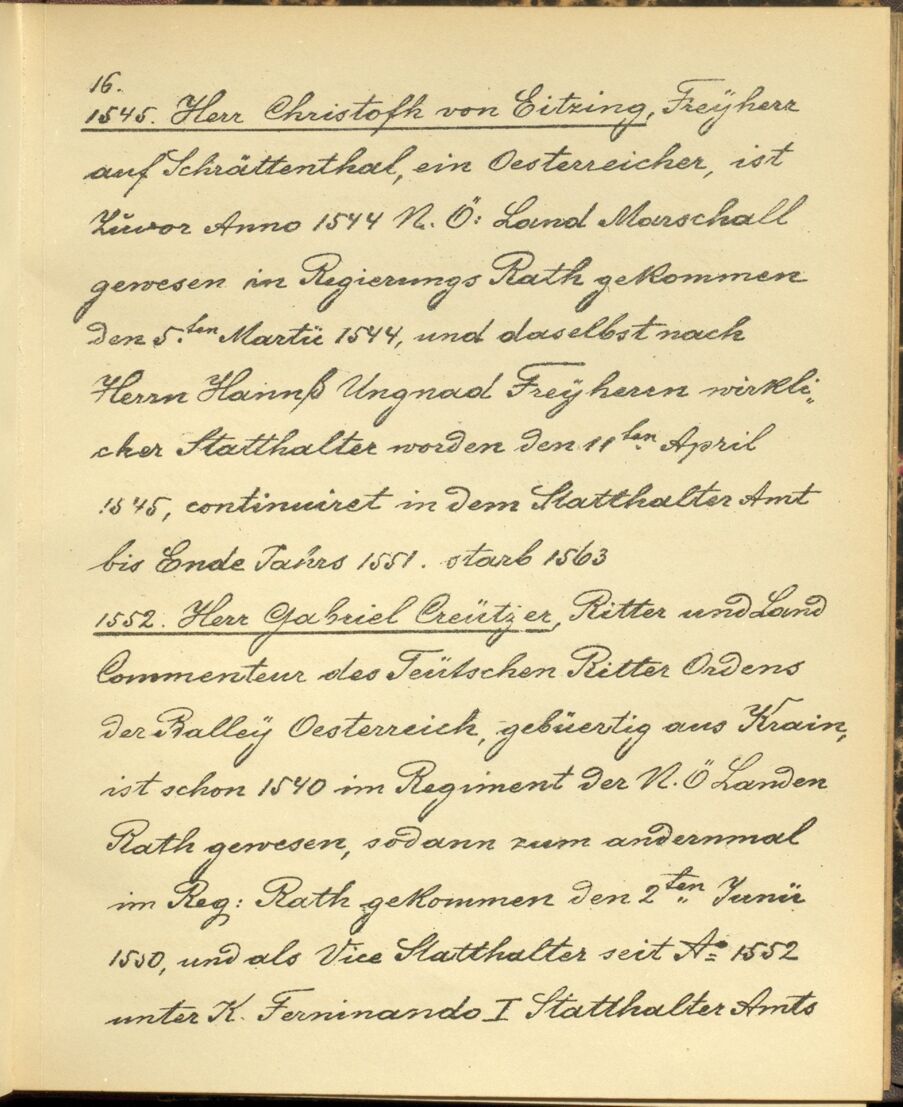 16.
1545. Herr Christofh von Eitzing, Freÿherr
auf Schrättenthal, ein Oesterreicher, ist
Zŭvor Anno 1544 N. Ö: Land Marschall
gewesen in Regierungs Rath gekommen
den 5.ten Martii 1544, und daselbst nach
Herrn Hannß Ungnad Freÿherrn wirkli„
cher Statthalter worden den 11ten April
1545, continuiret in dem Statthalter Amt
bis Ende Jahrs 1551. starb 1563
1552. Herr Gabriel Creützer, Ritter und Land
Commenteur des Teütschen Ritter Ordens
der Balleÿ Oesterreich, gebüertig aus Krain,
ist schon 1540 im Regiment der N. Ö Landen
Rath gewesen, sodann zum andernmal
im Reg: Rath gekommen den 2ten Junii
1550, und als Vice Statthalter seit Ao= 1552
unter K. Ferninando I Statthalter Amts